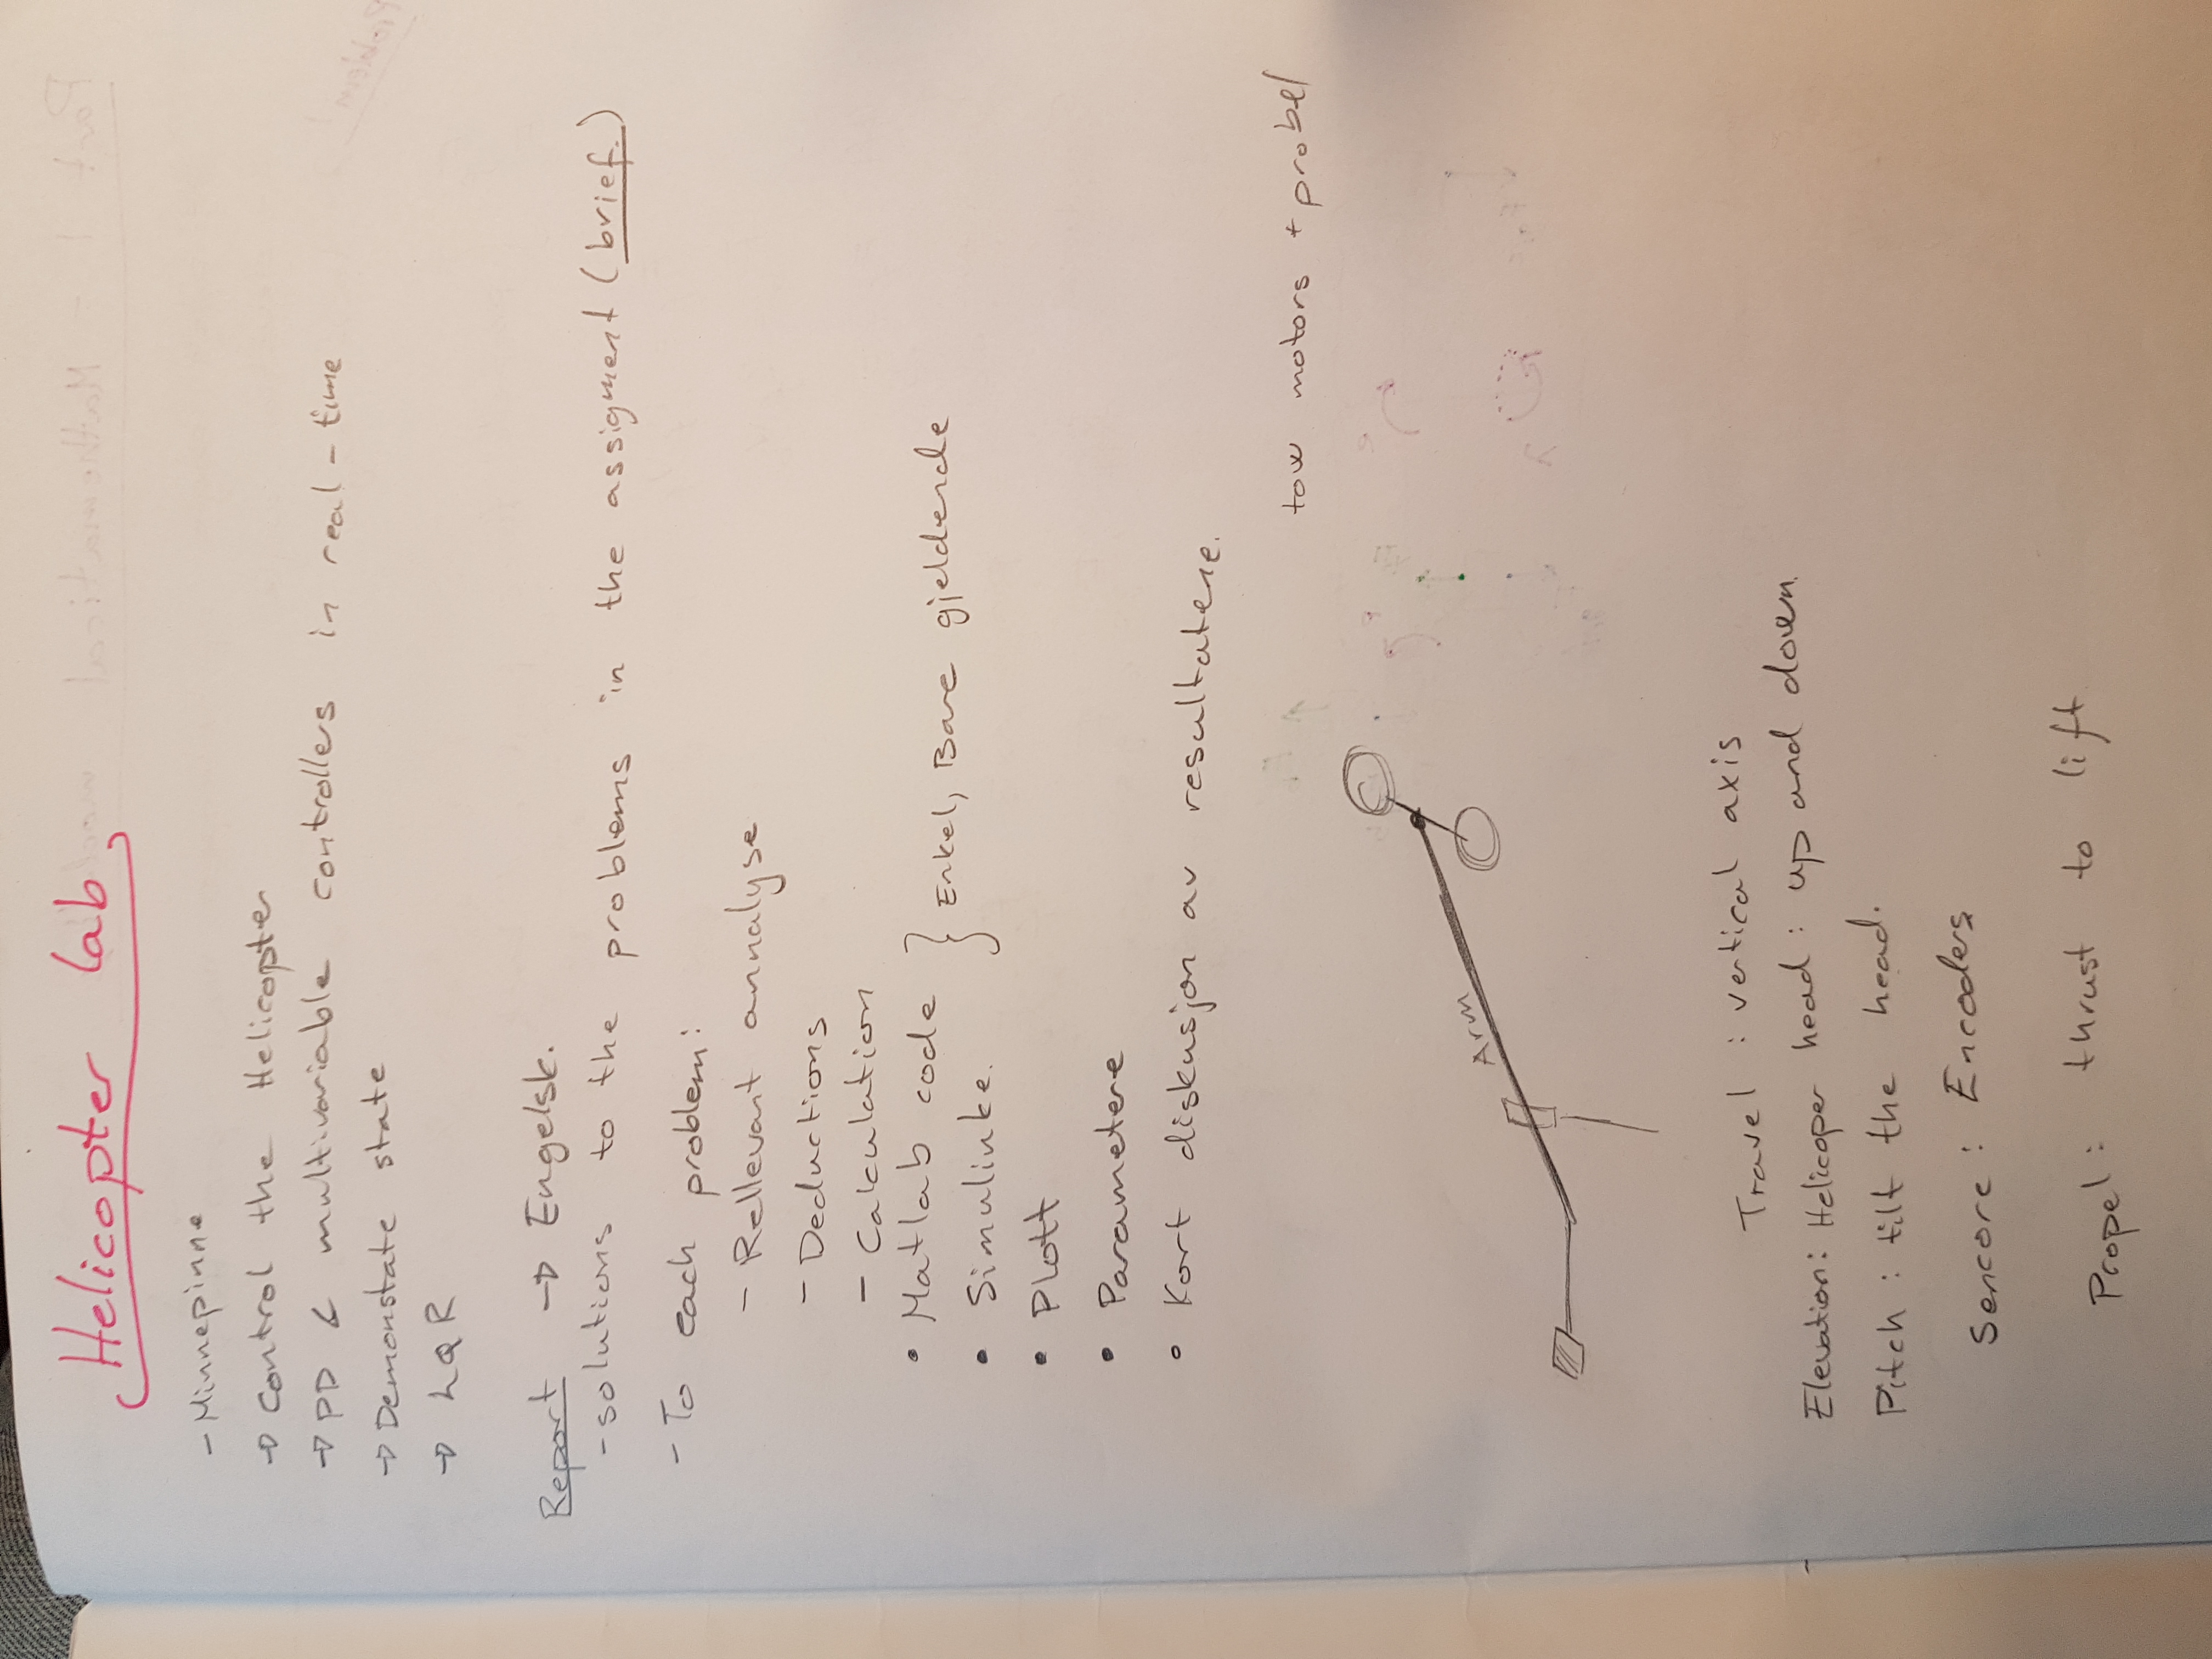 Helicopter lab
- Minnepinne
→ Control the Helicopter
→ PD & multivariable controllers in real-time
→ Demonstate state
→ LQR
Report → Engelsk.
- solutions to the problems in the assigment (brief.)
- To each problem:
- Rellevant annalyse
- Deductions
- Calculation
• Matlab code
} Enkel, Bare gjeldende
• Simulinke.
• Plott
• Parametere
• Kort diskusjon av resultatene.
tow motors + probel
Arm
Travel : vertical axis
Elevation: Helicoper head : up and down.
Pitch : tilt the head.
Sencore : Encoders
Propel : thrust to lift